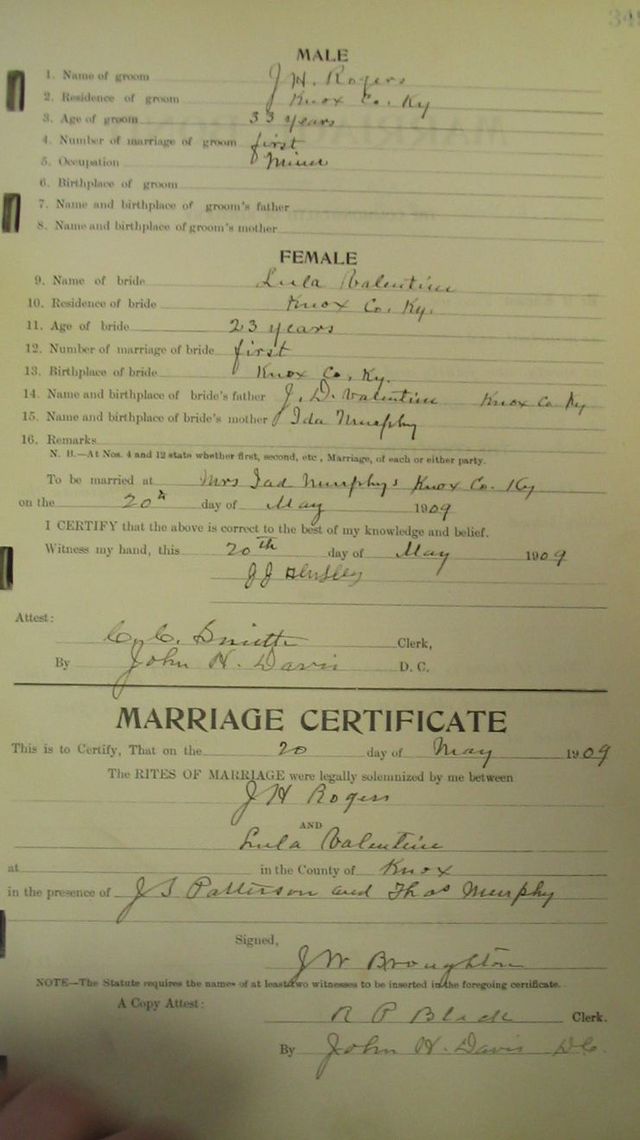 348
MALE
1. Name of groom J. H. Rogers
2. Residence of groom Knox Co. Ky
3. Age of groom 33 years
4. Number of marriage of groom first
5. Occupation Miner
6. Birthplace of groom
7. Name and birthplace of groom's father
8. Name and birthplace of groom's mother
FEMALE
9. Name of bride Lula Valentine
10. Residence of bride Knox Co. Ky.
11. Age of bride 23 years
12. Number of marriage of bride first
13. Birthplace of bride Knox Co, Ky.
14. Name and birthplace of bride's father J. D. Valentine Knox Co Ky
15. Name and birthplace of bride's mother Ida Murphy
16. Remarks
N. B.—At Nos. 4 and 12 state whether first, second, etc., Marriage, of each or either party.
To be married at Mrs Murphys Knox Co. Ky
on the 20th day of May 1909
I CERTIFY that the above is correct to the best of my knowledge and belief.
Witness my hand, this 20th day of May 1909
J J Hensley
Attest:
C. C. Smith Clerk,
By John H. Davis D. C.
MARRIAGE CERTIFICATE
This is to Certify, That on the 20 day of May 1909
The RITES OF MARRIAGE were legally solemnized by me between
J H Rogers
AND
Lula Valentine
at in the County of Knox
in the presence of J S Patterson and Thos Murphy
Signed,
J W Broughton
NOTE—The Statute requires the names of at least two witnesses to be inserted in the foregoing certificate.
A Copy Attest:
R P Black Clerk.
By John H. Davis DC.